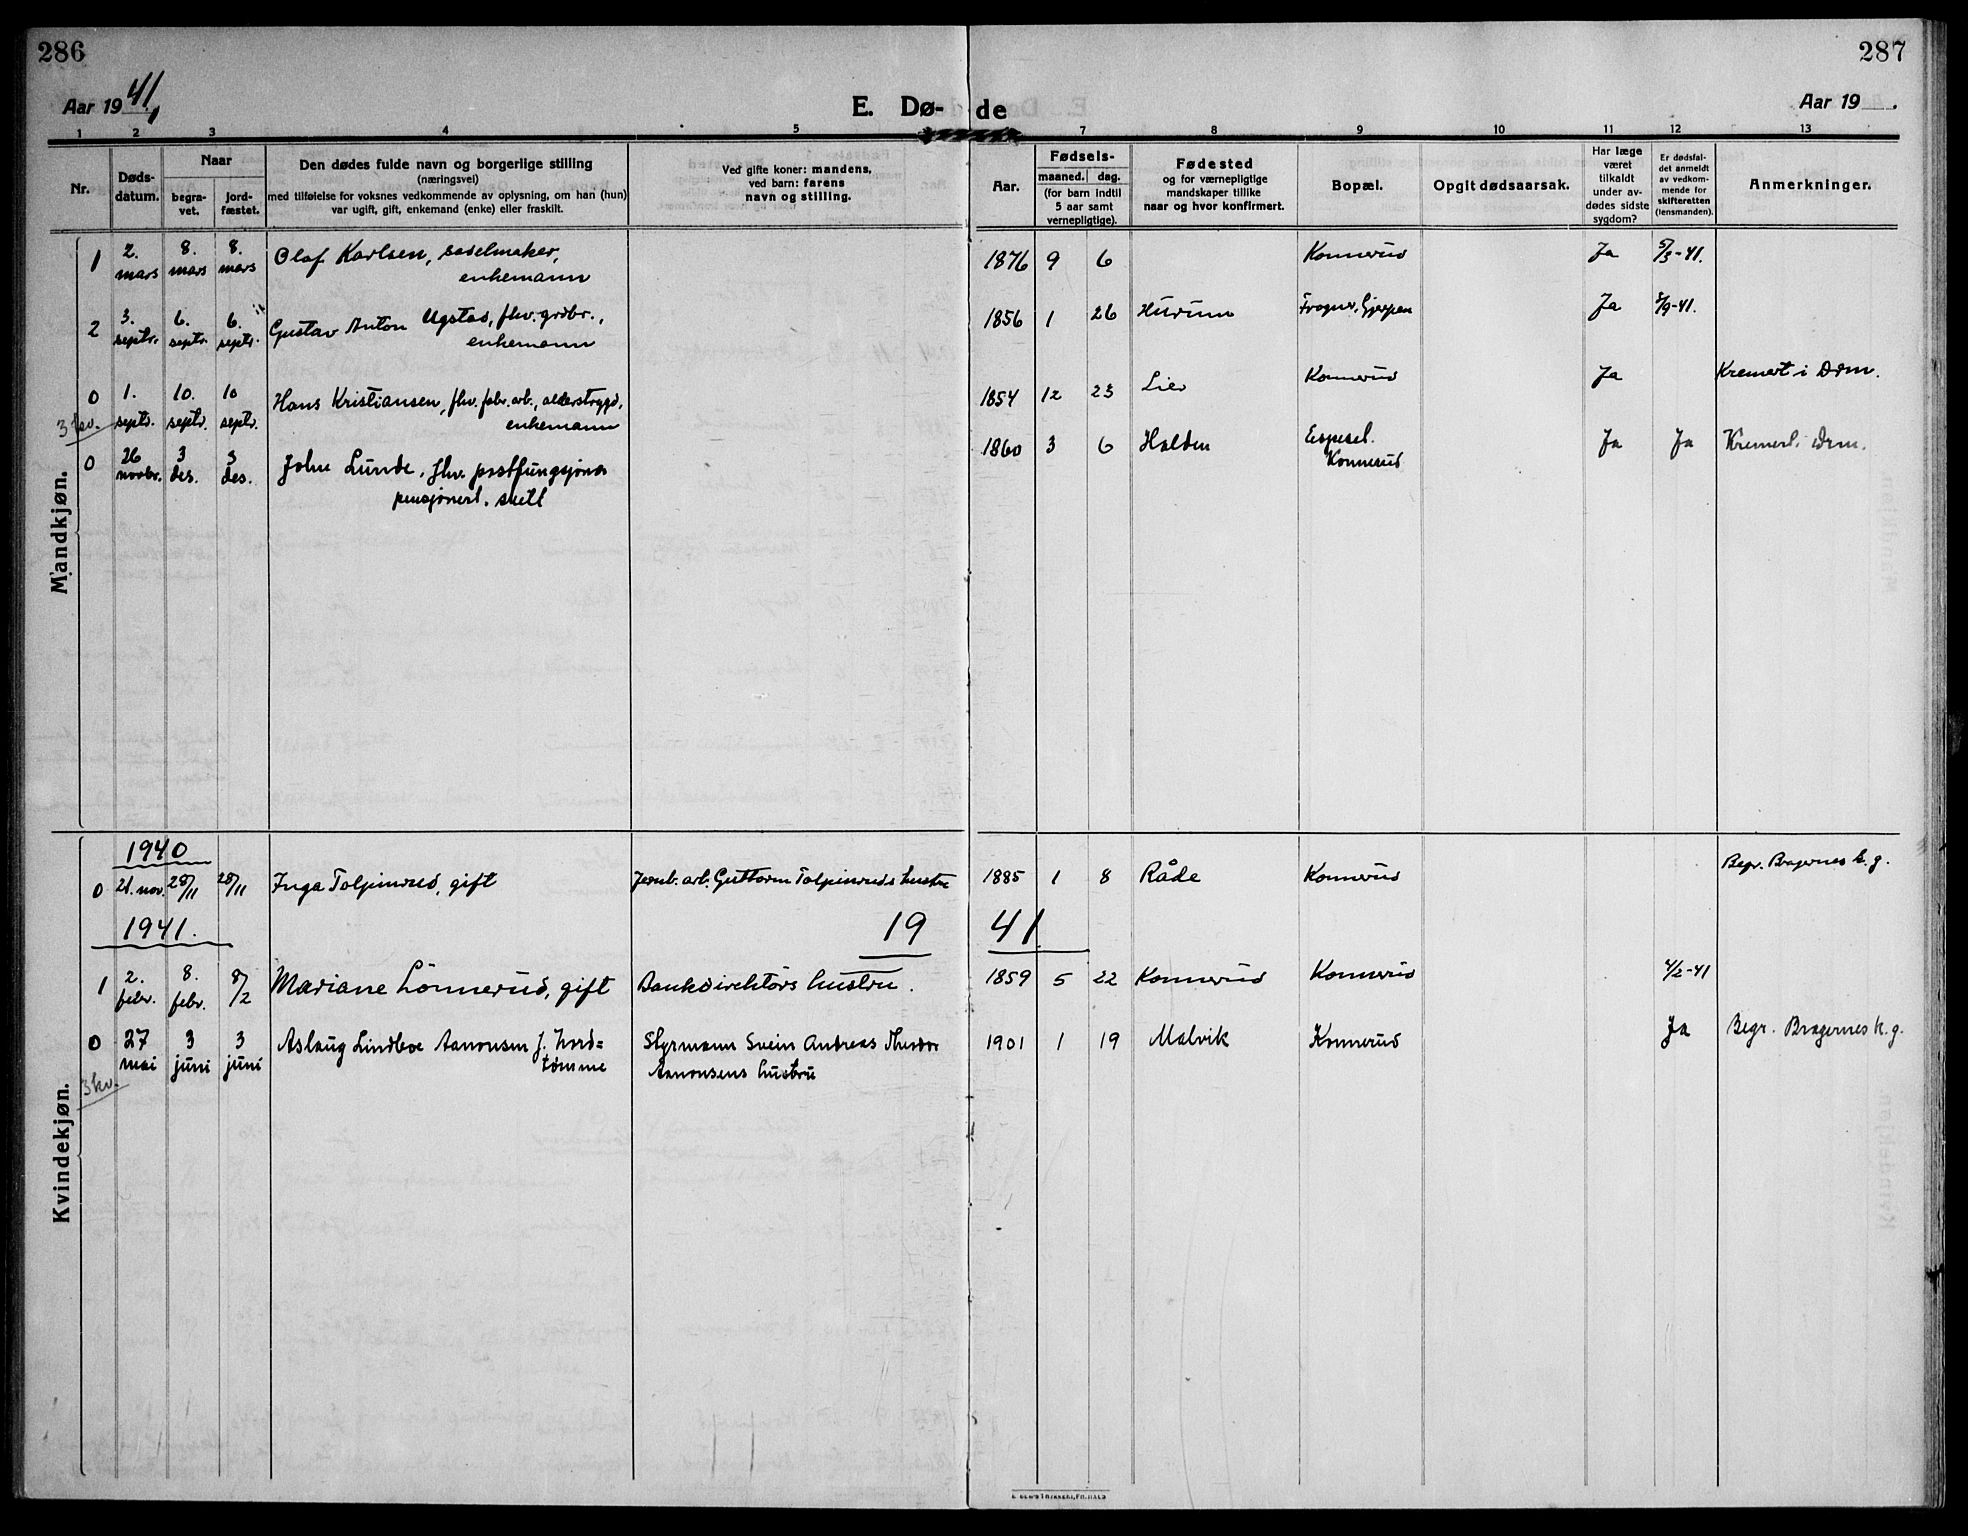 286
287
Aar 1941
E. Dø-de
Aar 19
1 2 3 4 5 7 8 9 10 11 12 13
Nr.
Døds-
datum.
Naar
begra-
vet.
jord-
fæstet.
Den dødes fulde navn og borgerlige stilling
(næringsvei)
med tilføielse for voksnes vedkommende av oplysning, om han (hun)
var ugift, gift, enkemand (enke) eller fraskilt.
Ved gifte koner: mandens,
ved barn: farens
navn og stilling.
Aar.
Fødsels-
maaned. dag.
(for barn indtil
5 aar samt
vernepligtige).
Fødested
og for værnepligtige
mandskaper tillike
naar og hvor konfirmert.
Bopæl.
Opgit dødsaarsak.
Har læge
været
tilkaldt
under av-
dødes sidste
sygdom?
Er dødsfal-
det anmeldt
av vedkom-
mende for
skifteretten
(lensmanden).
Anmerkninger.
Mandkjøn.
1 2. mars 8. mars 8. mars Olaf Karlsen, sadelmaker, 1876 9 6 Konnerud Ja 5/3-41.
enkemann
2 3. septr. 6. septr. 6. septr. Gustav Anton Ugstad, fhv. grdbr., 1856 1 26 Hurum Frogner, Gjerpen Ja 5/9-41.
enkemann
0 1. septr. 10. septr. 10 septr. Hans Kristiansen, fhv. fabr. arb., alderstrygd, 1854 12 23 Lier Konnerud Ja Kremert i Drm.
enkemann
3 kv.
0 26 novbr. 3 des. 3 des. John Lunde, fhv. postfungsjonær 1860 3 6 Halden Ja Ja Kremert i Drm.
pensjonert. Konnerud
Kvindekjøn.
1940
0 21. nov. 28/11 28/11 Inga Tolpinrud, gift Jernb. arb. Guttorm Tolpinruds hustru 1885 1 8 Råde Konnerud Begr. Bragernes k. g.
1941.
19 41
1 2. febr. 8. febr. 8/2 Mariane Lönnerud, gift Bankdirektörs hustru. 1859 5 22 Konnerud Konnerud 4/2-41
0 27 mai 3 juni 3 juni Aslaug Lindboe Aanonsen f. Nord= Styrmann Svein Andreas Theodor 1901 1 19 Malvik Konnerud Ja Begr. Bragernes k. g.
tømme Aanonsens hustru
3 kv.